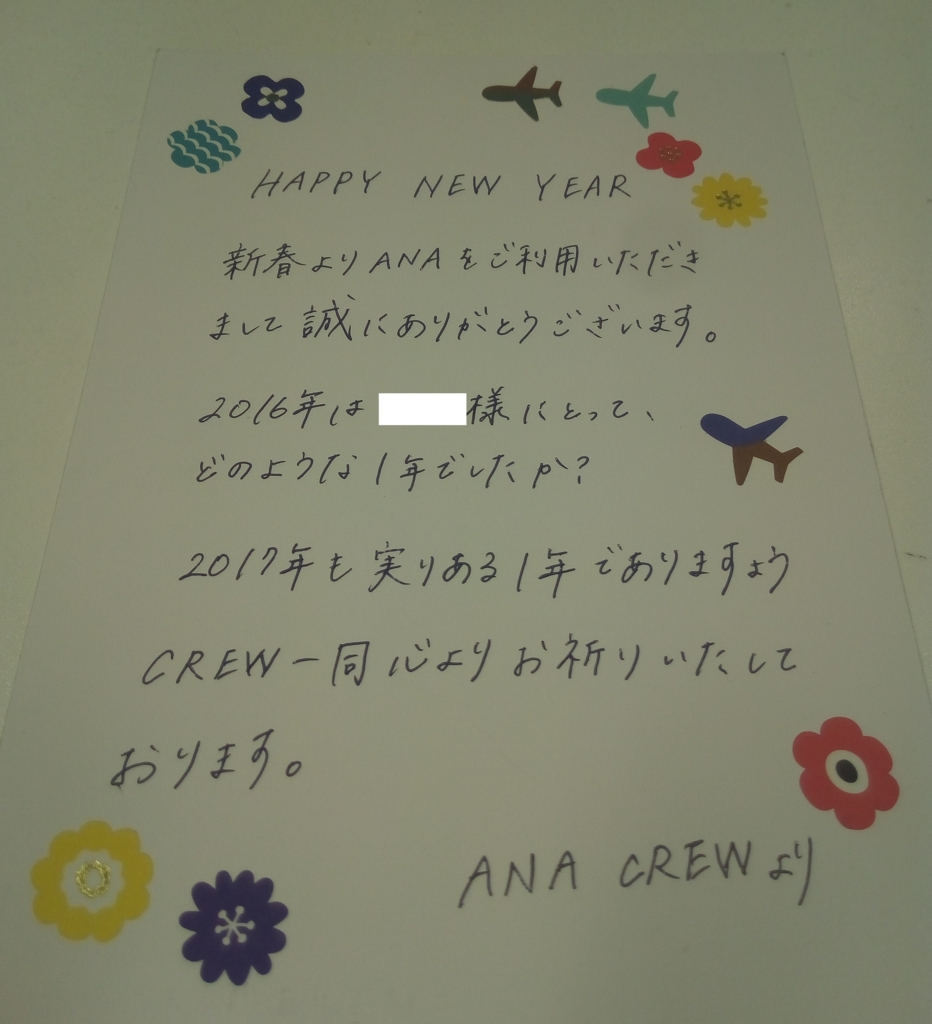 HAPPY NEW YEAR
新春よりANAをご利用いただき
まして誠にありがとうございます。
2016年は 様にとって、
どのような1年でしたか?
2017年も実りある1年でありますよう
CREW一同心よりお祈りいたして
おります。
ANA CREWより